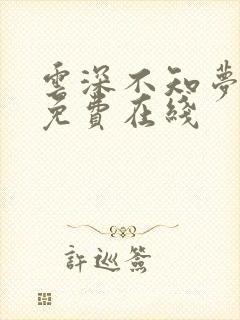 雲深不知夢
免費在綫
許巡簽